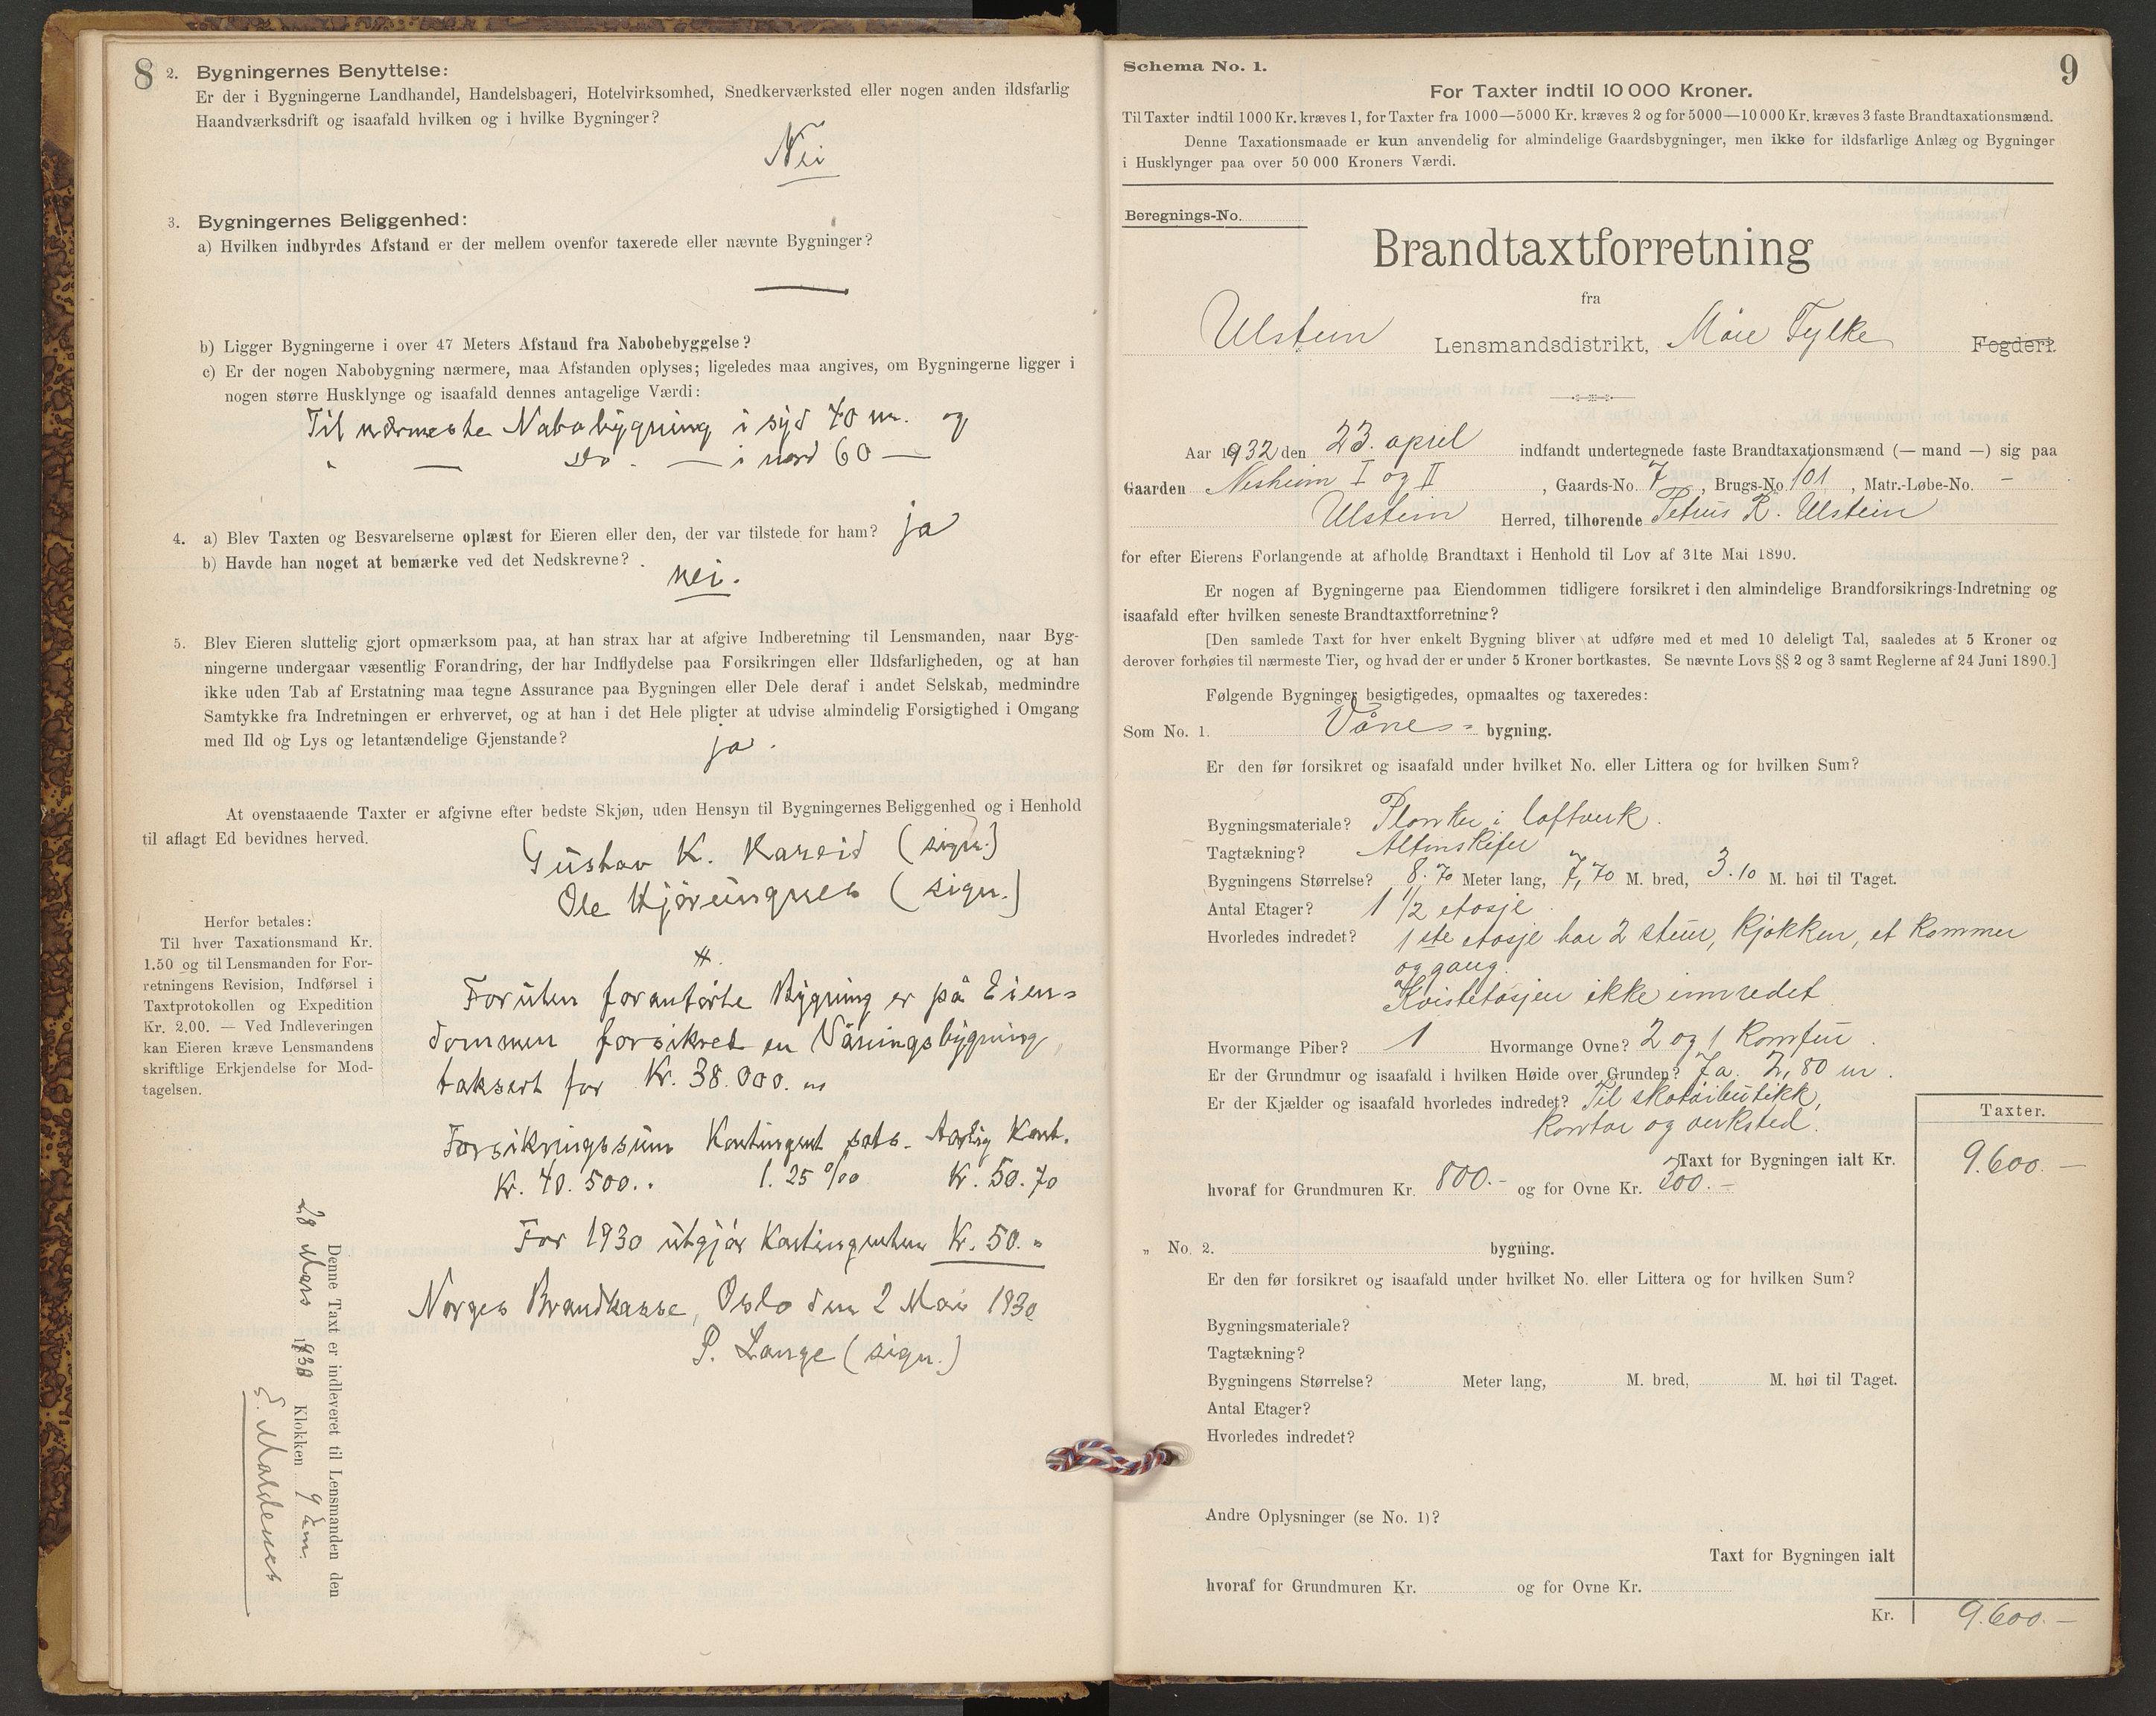 8
2. Bygningernes Benyttelse:
Er der i Bygningerne Landhandel, Handelsbageri, Hotelvirksomhed, Snedkerværksted eller nogen anden ildsfarlig
Haandværksdrift og isaafald hvilken og i hvilke Bygninger?
Nei
3. Bygningernes Beliggenhed:
a) Hvilken indbyrdes Afstand er der mellem ovenfor taxerede eller nævnte Bygninger?
—
b) Ligger Bygningerne i over 47 Meters Afstand fra Nabobebyggelse?
c) Er der nogen Nabobygning nærmere, maa Afstanden oplyses; ligeledes maa angives, om Bygningerne ligger i
nogen større Husklynge og isaafald dennes antagelige Værdi:
Til nærmeste Nabobygning i syd 40 m. og
" — do. — i nord 60 —
4. a) Blev Taxten og Besvarelserne oplæst for Eieren eller den, der var tilstede for ham? ja
b) Havde han noget at bemærke ved det Nedskrevne?
nei.
5. Blev Eieren sluttelig gjort opmærksom paa, at han strax har at afgive Indberetning til Lensmanden, naar Byg-
ningerne undergaar væsentlig Forandring, der har Indflydelse paa Forsikringen eller Ildsfarligheden, og at han
ikke uden Tab af Erstatning maa tegne Assurance paa Bygningen eller Dele deraf i andet Selskab, medmindre
Samtykke fra Indretningen er erhvervet, og at han i det Hele pligter at udvise almindelig Forsigtighed i Omgang
med Ild og Lys og letantændelige Gjenstande?
ja.
At ovenstaaende Taxter er afgivne efter bedste Skjøn, uden Hensyn til Bygningernes Beliggenhed og i Henhold
til aflagt Ed bevidnes herved.
Gustav K. Hareid (sign.)
Ole Hjörungnes (sign.)
Herfor betales:
Til hver Taxationsmand Kr.
1.50 og til Lensmanden for For-
retningens Revision, Indførsel i
Taxtprotokollen og Expedition
Kr. 2.00. — Ved Indleveringen
kan Eieren kræve Lensmandens
skriftlige Erkjendelse for Mod-
tagelsen.
Foruten foranførte Bygning er på Eien=
dommen forsikret en Våningsbygning,
taksert for Kr. 38.000.
Forsikringssum Kontingent sats. Aarlig Kont.
Kr. 40.500.. 1.25 ‰ Kr. 50.70
For 1930 utgjör Kontingenten Kr. 50.
Norges Brandkasse, Oslo den 2 Mai 1930
P. Lange (sign.)
Denne Taxt er indleveret til Lensmanden den
28 Mars 1930 Klokken 9 em.
E. Maldenes
9
Schema No. 1.
For Taxter indtil 10 000 Kroner.
Til Taxter indtil 1000 Kr. kræves 1, for Taxter fra 1000—5000 Kr. kræves 2 og for 5000—10000 Kr. kræves 3 faste Brandtaxationsmænd.
Denne Taxationsmaade er kun anvendelig for almindelige Gaardsbygninger, men ikke for ildsfarlige Anlæg og Bygninger
i Husklynger paa over 50 000 Kroners Værdi.
Beregnings-No.
Brandtaxtforretning
fra
Ulstein Lensmandsdistrikt, Möre Fylke Fogderi.
Aar 1932 den 23. april indfandt undertegnede faste Brandtaxationsmænd (— mand —) sig paa
Gaarden Nesheim I og II, Gaards-No. 7, Brugs-No. 101, Matr.-Løbe-No. —
Ulstein Herred, tilhørende Petrus R. Ulstein
for efter Eierens Forlangende at afholde Brandtaxt i Henhold til Lov af 31te Mai 1890.
Er nogen af Bygningerne paa Eiendommen tidligere forsikret i den almindelige Brandforsikrings-Indretning og
isaafald efter hvilken seneste Brandtaxtforretning?
[Den samlede Taxt for hver enkelt Bygning bliver at udføre med et med 10 deleligt Tal, saaledes at 5 Kroner og
derover forhøies til nærmeste Tier, og hvad der er under 5 Kroner bortkastes. Se nævnte Lovs §§ 2 og 3 samt Reglerne af 24 Juni 1890.]
Følgende Bygninger besigtigedes, opmaaltes og taxeredes:
Som No. 1. Vånes= bygning.
Er den før forsikret og isaafald under hvilket No. eller Littera og for hvilken Sum?
Bygningsmateriale? Planker i loftverk.
Tagtækning? Altinskifer
Bygningens Størrelse? 8.70 Meter lang, 7,70 M. bred, 3.10 M. høi til Taget.
Antal Etager? 1 1/2 etasje
Hvorledes indredet? 1ste etasje har 2 stuer, kjøkken, et kammer
og gang.
Kvistetasjen ikke innredet
Hvormange Piber? 1 Hvormange Ovne? 2 og 1 komfur.
Er der Grundmur og isaafald i hvilken Høide over Grunden? Ja. 2,80 m.
Er der Kjælder og isaafald hvorledes indredet? Til skotøibutikk,
kontor og verksted.
Taxter.
Taxt for Bygningen ialt Kr. 9.600.—
hvoraf for Grundmuren Kr. 800.- og for Ovne Kr. 200.-
„ No. 2. bygning.
Er den før forsikret og isaafald under hvilket No. eller Littera og for hvilken Sum?
Bygningsmateriale?
Tagtækning?
Bygningens Størrelse? Meter lang, M. bred, M. høi til Taget.
Antal Etager?
Hvorledes indredet?
Andre Oplysninger (se No. 1)?
Taxt for Bygningen ialt
hvoraf for Grundmuren Kr. og for Ovne Kr.
Kr. 9.600.—